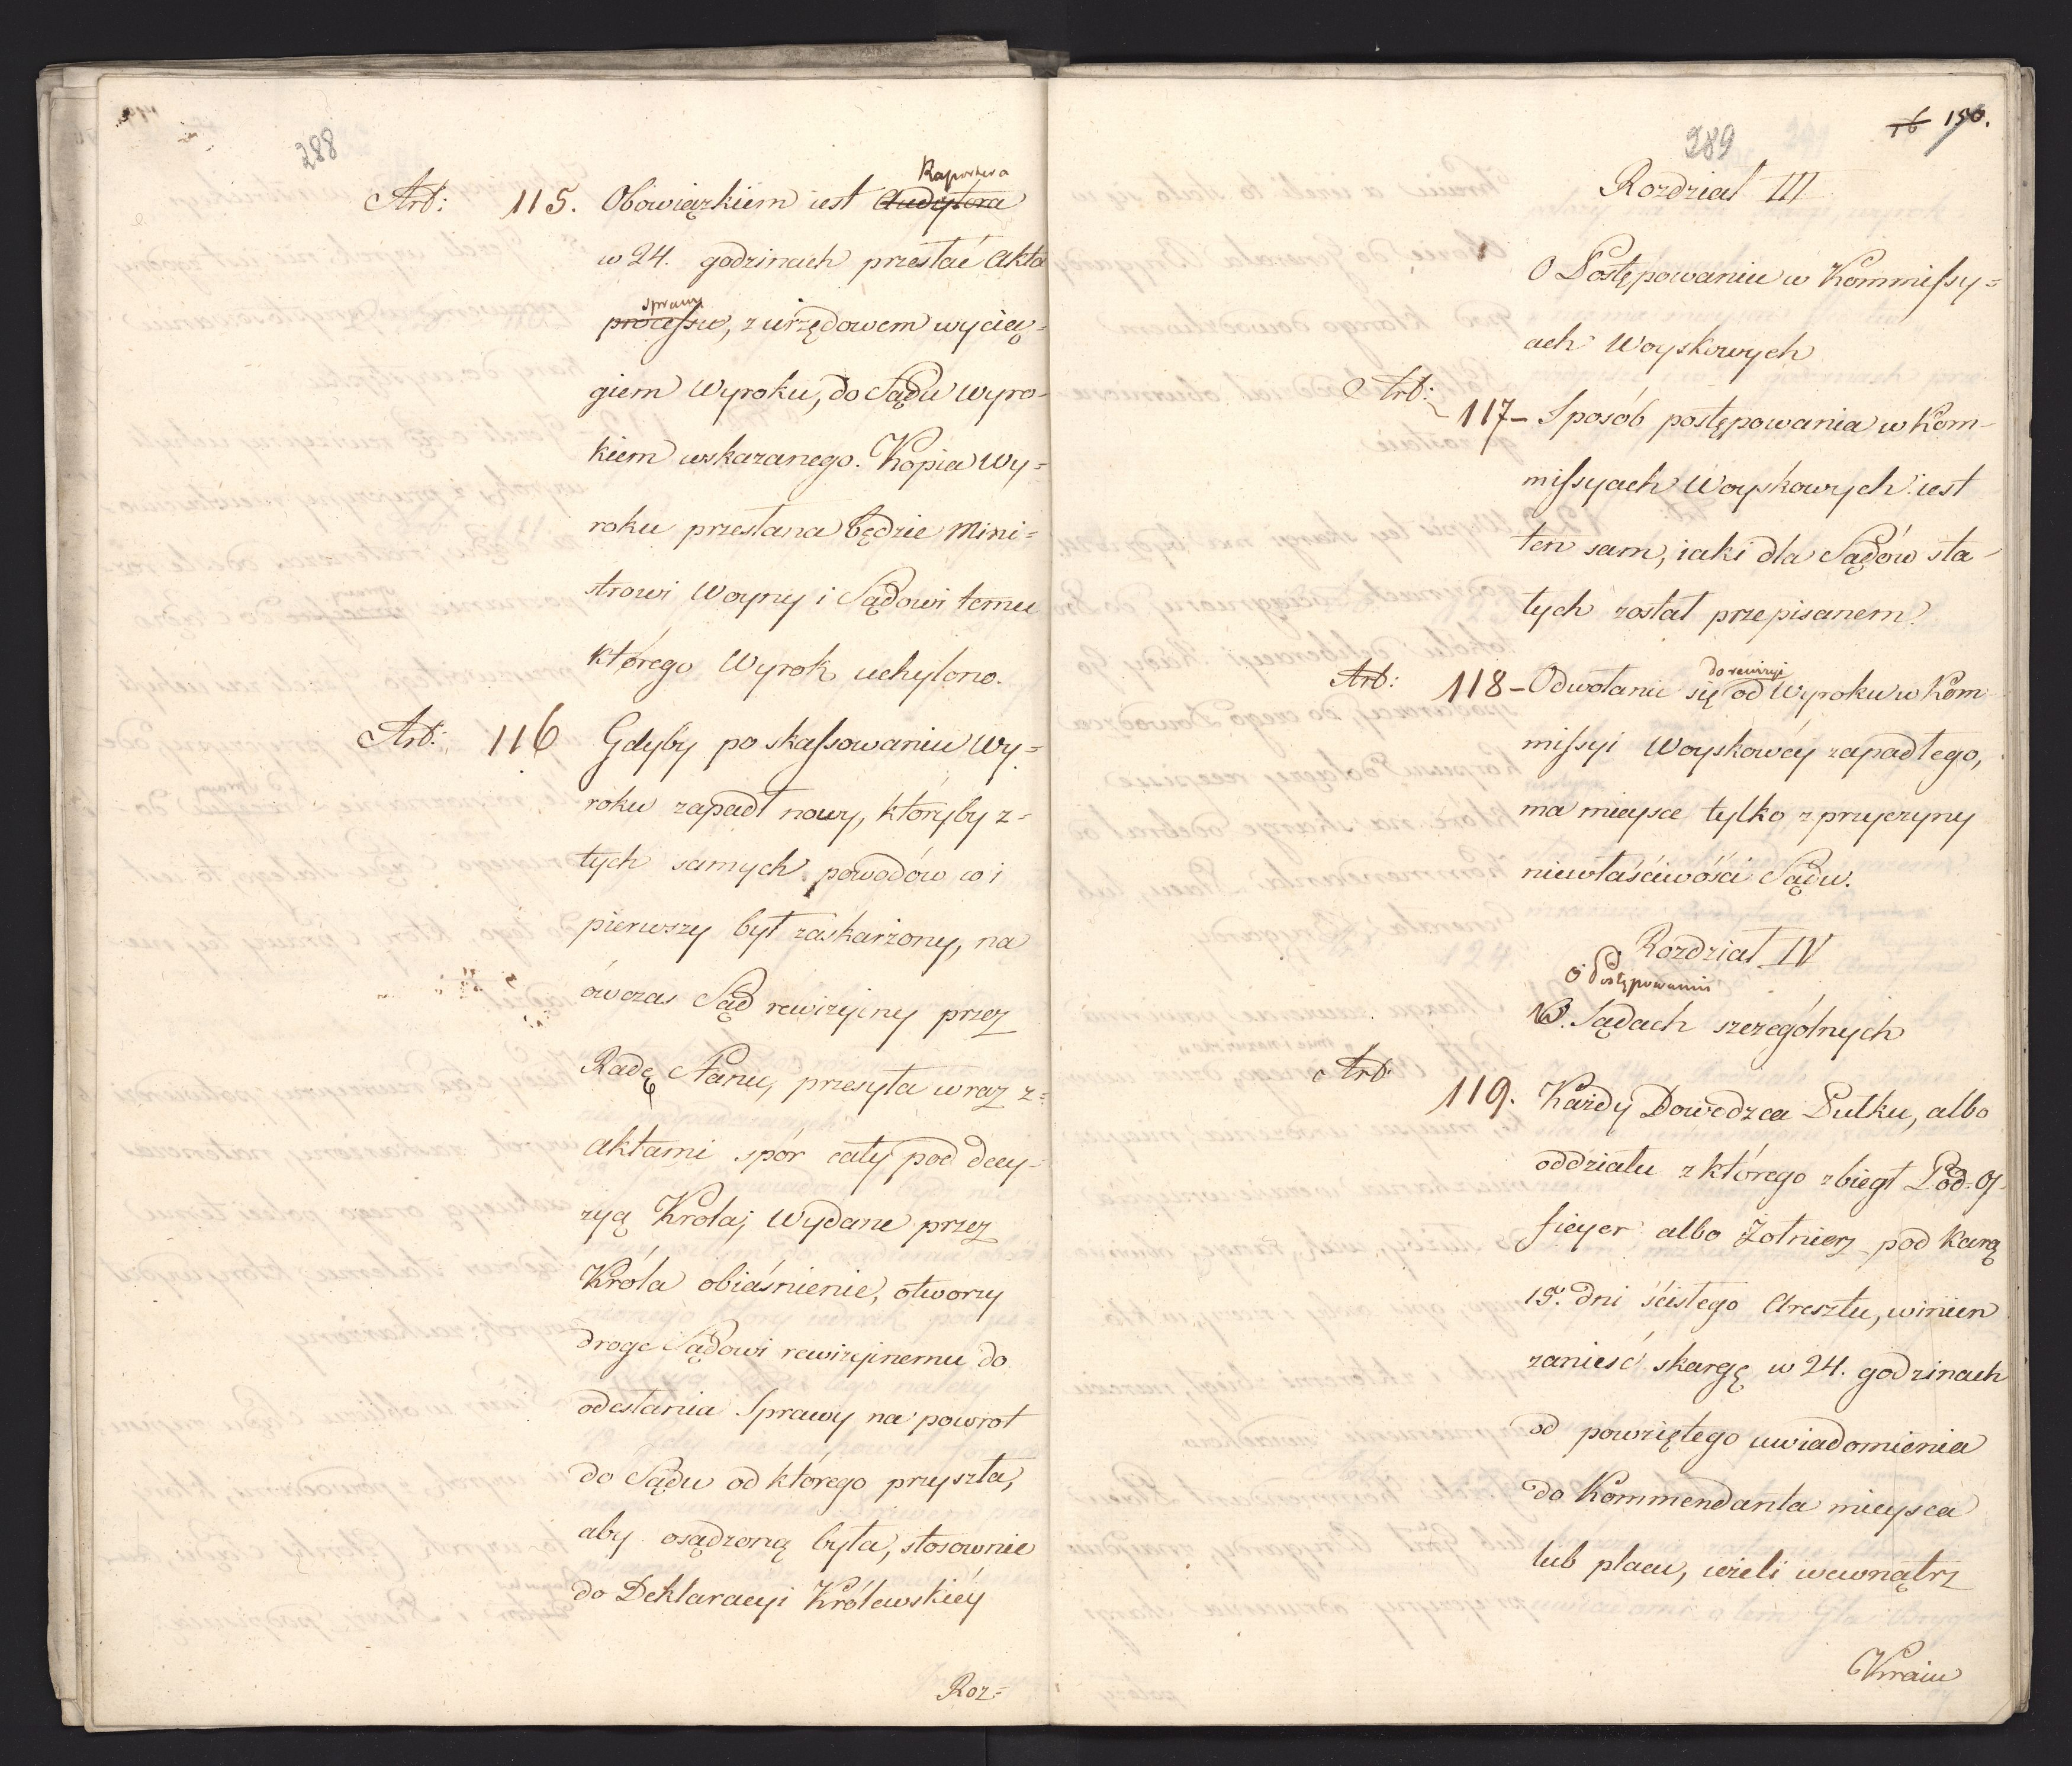 288
Art: 115. Obowiązkiem iest Audytora Raportera
w 24. godzinach przesłać Akta
processu sprawy, z urzędowem wycią=
giem Wyroku, do Sądu Wyro=
kiem wskazanego. Kopia Wy=
roku przesłana będzie Mini=
strowi Woyny i Sądowi temu
którego Wyrok uchylono.
Art: 116 Gdyby po skassowaniu Wy=
roku zapadł nowy, któryby z=
tych samych powodów co i
pierwszy był zaskarżony, na
ówczas Sąd rewizyiny przez
Radę Stanu, przesyła wraz z=
aktami spór cały pod decy=
zyą Krola; Wydane przez
Króla obiaśnienie, otworzy
drogę Sądowi rewizyinemu do
odesłania Sprawy na powrot
do Sądu od którego przyszła,
aby osądzoną była, stosownie
do Deklaracyi Królewskiéy
Roz=
289
16 150.
Rozdział III
O Postępowaniu w Kommissy=
ach Woyskowych
Art: 117– Sposób postępowania w Kom=
missyach Woyskowych iest
ten sam, iaki dla Sądów sta=
łych został przepisanem.
Art: 118– Odwołanie się do rewizyi od Wyroku w Kom=
missyi Woyskowéy zapadłego,
ma mieysce tylko z przyczyny
niewłaściwości Sądu.
Rozdział IV
O Postępowaniu
W. Sądach szczególnych
Art: 119. Każdy Dowódzca Pułku, albo
oddziału z którego zbiegł Pod=Of=
ficyer albo Żołnierz pod karą
15. dni ścisłego Aresztu, winien
zanieść skargę w 24. godzinach
od powziętego uwiadomienia
do Kommendanta mieysca
lub placu, ieżeli wewnątrz
Kraiu